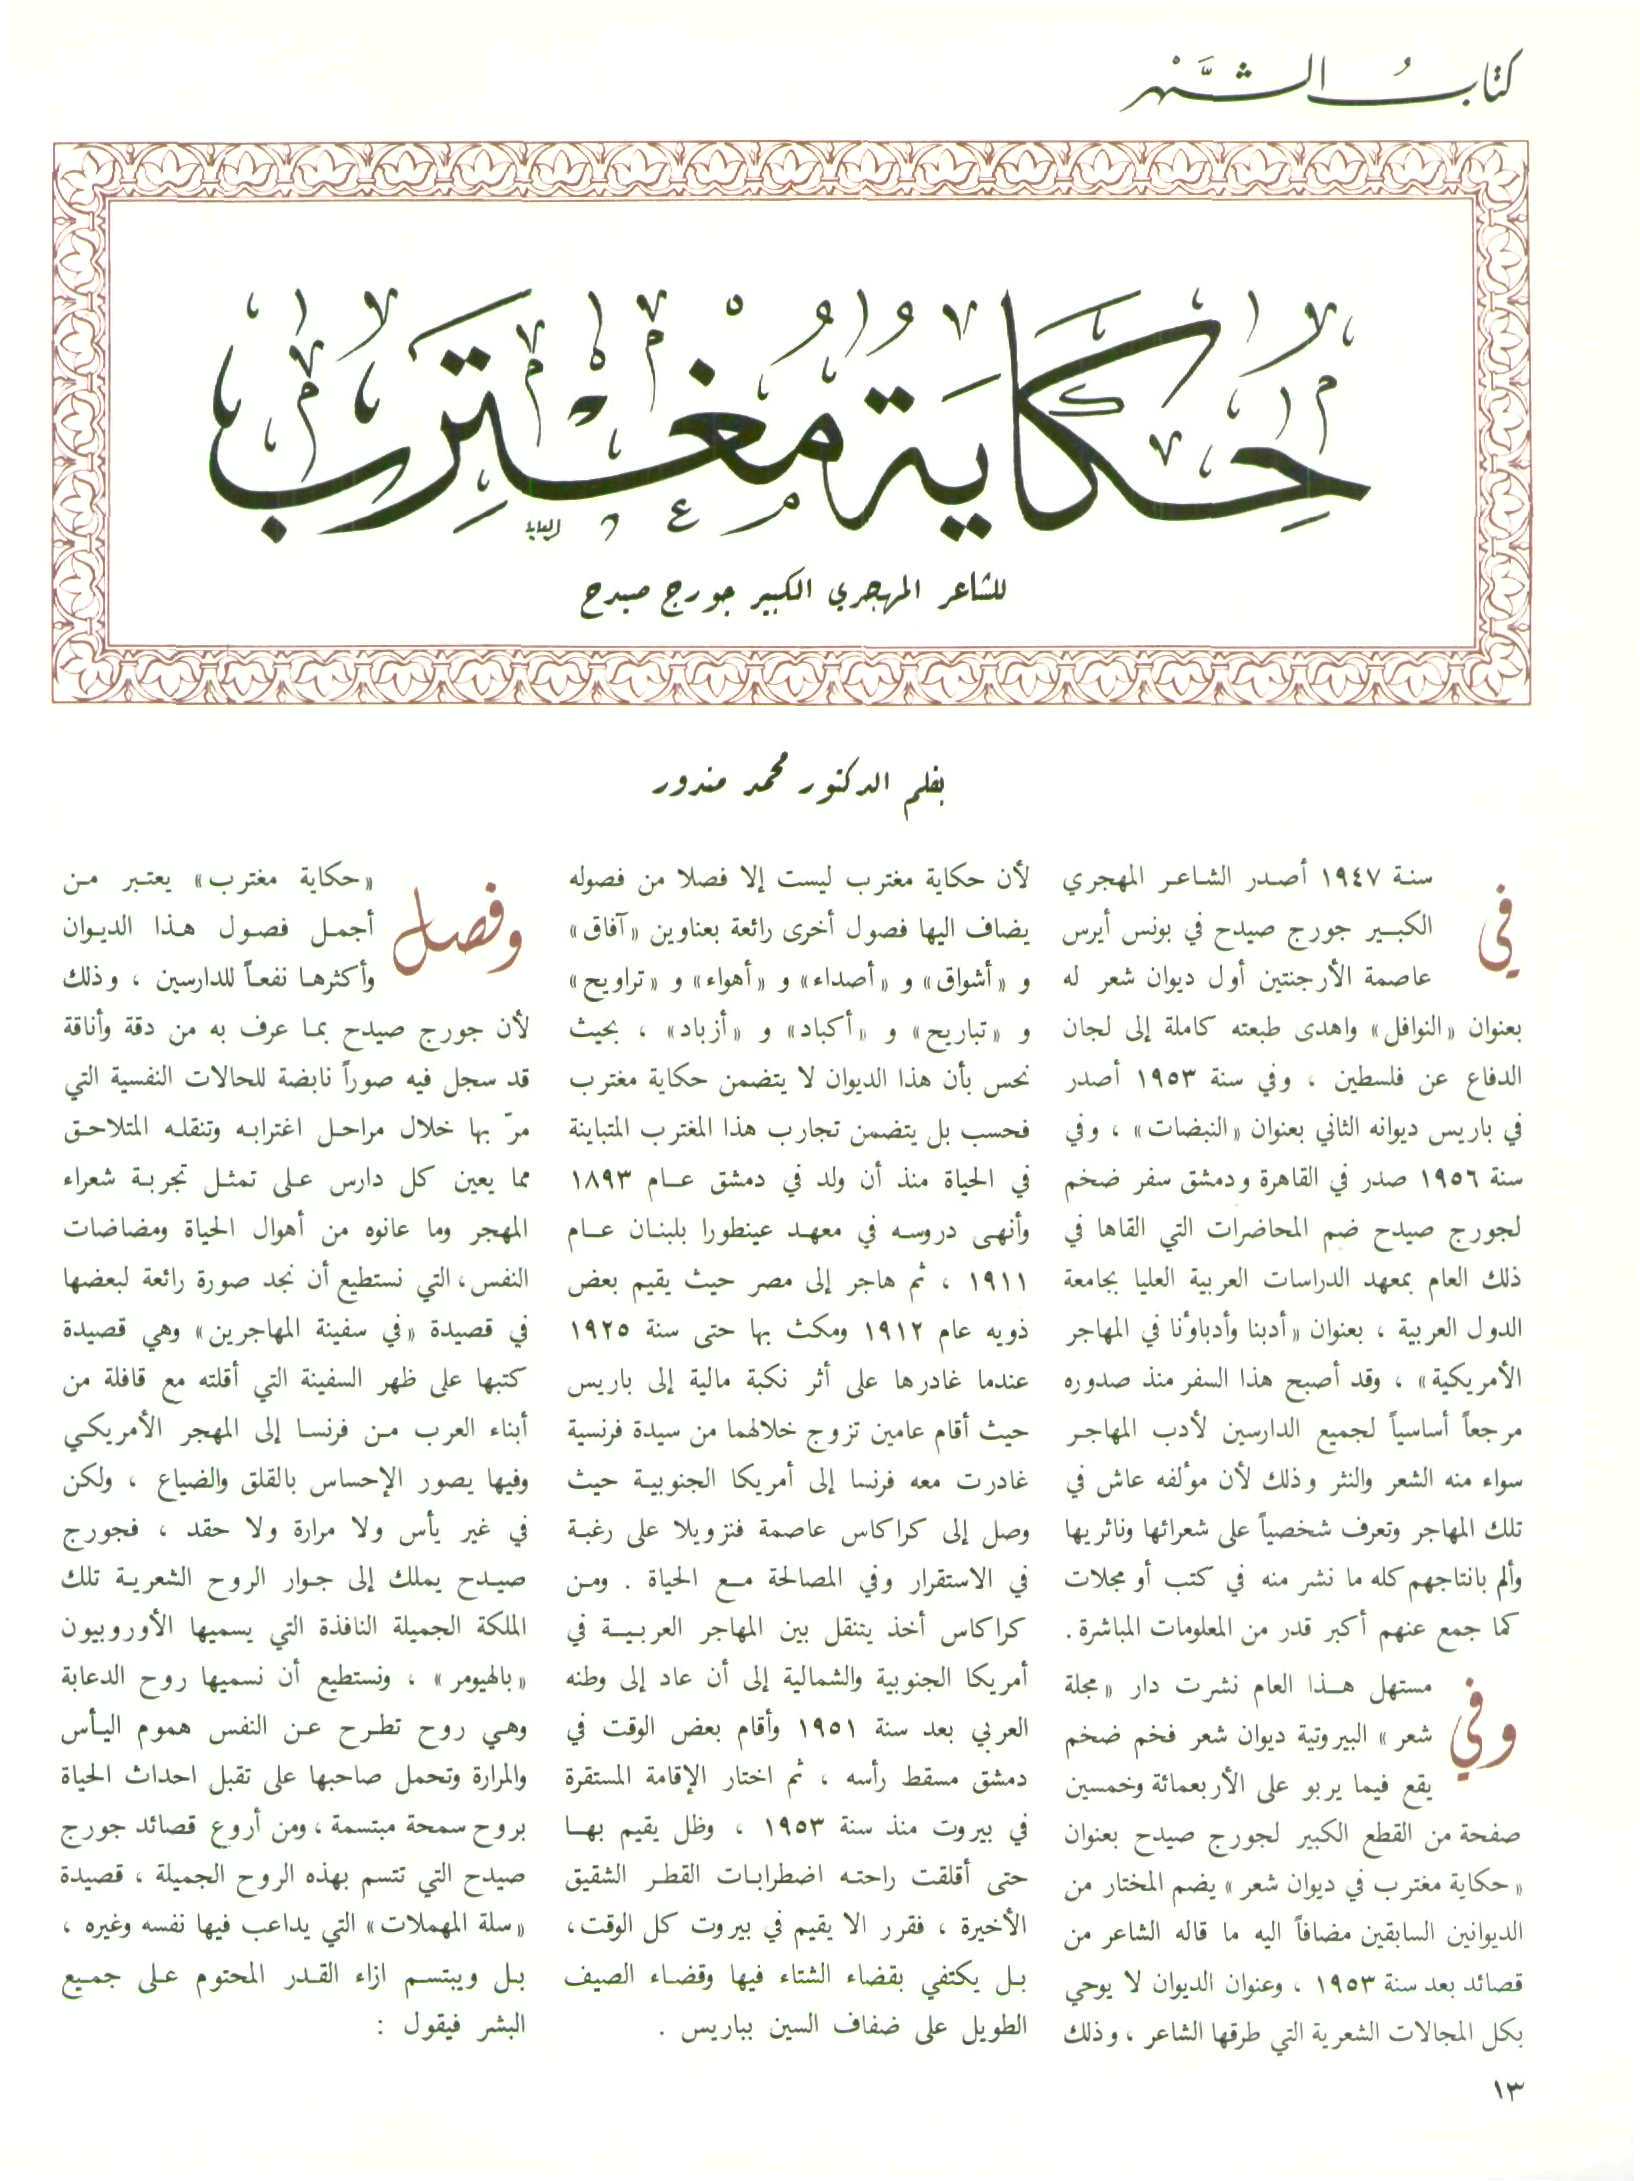 كتاب الشهر
حكاية مغترب
للشاعر المهجري الكبير جورج صيدح
بقلم الدكتور محمد مندور
في سنة ١٩٤٧ أصدر الشاعر المهجري
الكبير جورج صيدح في بونس أيرس
عاصمة الأرجنتين أول ديوان شعر له
بعنوان «النوافل» واهدى طبعته كاملة إلى لجان
الدفاع عن فلسطين ، وفي سنة ١٩٥٣ أصدر
في باريس ديوانه الثاني بعنوان «النبضات» ، وفي
سنة ١٩٥٦ صدر في القاهرة ودمشق سفر ضخم
لجورج صيدح ضم المحاضرات التي القاها في
ذلك العام بمعهد الدراسات العربية العليا بجامعة
الدول العربية ، بعنوان «أدبنا وأدباؤنا في المهاجر
الأمريكية» ، وقد أصبح هذا السفر منذ صدوره
مرجعاً أساسياً لجميع الدارسين لأدب المهاجر
سواء منه الشعر والنثر وذلك لأن مؤلفه عاش في
تلك المهاجر وتعرف شخصياً على شعرائها وناثريها
وألم بانتاجهم كله ما نشر منه في كتب أو مجلات
كما جمع عنهم أكبر قدر من المعلومات المباشرة .
وفي مستهل هذا العام نشرت دار «مجلة
شعر» البيروتية ديوان شعر فخم ضخم
يقع فيما يربو على الأربعمائة وخمسين
صفحة من القطع الكبير لجورج صيدح بعنوان
«حكاية مغترب في ديوان شعر» يضم المختار من
الديوانين السابقين مضافاً اليه ما قاله الشاعر من
قصائد بعد سنة ١٩٥٣ ، وعنوان الديوان لا يوحي
بكل المجالات الشعرية التي طرقها الشاعر ، وذلك
لأن حكاية مغترب ليست إلا فصلا من فصوله
يضاف اليها فصول أخرى رائعة بعناوين «آفاق»
و «أشواق» و «أصداء» و «أهواء» و «تراويح»
و «تباريح» و «أكباد» و «أزباد» ، بحيث
نحس بأن هذا الديوان لا يتضمن حكاية مغترب
فحسب بل يتضمن تجارب هذا المغترب المتباينة
في الحياة منذ أن ولد في دمشق عام ١٨٩٣
وأنهى دروسه في معهد عينطورا بلبنان عام
١٩١١ ، ثم هاجر إلى مصر حيث يقيم بعض
ذويه عام ١٩١٢ ومكث بها حتى سنة ١٩٢٥
عندما غادرها على أثر نكبة مالية إلى باريس
حيث أقام عامين تزوج خلالهما من سيدة فرنسية
غادرت معه فرنسا إلى أمريكا الجنوبية حيث
وصل إلى كراكاس عاصمة فنزويلا على رغبة
في الاستقرار وفي المصالحة مع الحياة . ومن
كراكاس أخذ يتنقل بين المهاجر العربية في
أمريكا الجنوبية والشمالية إلى أن عاد إلى وطنه
العربي بعد سنة ١٩٥١ وأقام بعض الوقت في
دمشق مسقط رأسه ، ثم اختار الإقامة المستقرة
في بيروت منذ سنة ١٩٥٣ ، وظل يقيم بها
حتى أقلقت راحته اضطرابات القطر الشقيق
الأخيرة ، فقرر الا يقيم في بيروت كل الوقت ،
بل يكتفي بقضاء الشتاء فيها وقضاء الصيف
الطويل على ضفاف السين بباريس .
وفصل «حكاية مغترب» يعتبر من
أجمل فصول هذا الديوان
وأكثرها نفعاً للدارسين ، وذلك
لأن جورج صيدح بما عرف به من دقة وأناقة
قد سجل فيه صوراً نابضة للحالات النفسية التي
مرّ بها خلال مراحل اغترابه وتنقله المتلاحق
مما يعين كل دارس على تمثل تجربة شعراء
المهجر وما عانوه من أهوال الحياة ومضاضات
النفس ، التي نستطيع أن نجد صورة رائعة لبعضها
في قصيدة «في سفينة المهاجرين» وهي قصيدة
كتبها على ظهر السفينة التي أقلته مع قافلة من
أبناء العرب من فرنسا إلى المهجر الأمريكي
وفيها يصور الإحساس بالقلق والضياع ، ولكن
في غير يأس ولا مرارة ولا حقد ، فجورج
صيدح يملك إلى جوار الروح الشعرية تلك
الملكة الجميلة النافذة التي يسميها الأوروبيون
«بالهيومر» ، ونستطيع أن نسميها روح الدعابة
وهي روح تطرح عن النفس هموم اليأس
والمرارة وتحمل صاحبها على تقبل احداث الحياة
بروح سمحة مبتسمة ، ومن أروع قصائد جورج
صيدح التي تتسم بهذه الروح الجميلة ، قصيدة
«سلة المهملات» التي يداعب فيها نفسه وغيره ،
بل ويبتسم ازاء القدر المحتوم على جميع
البشر فيقول :
١٣